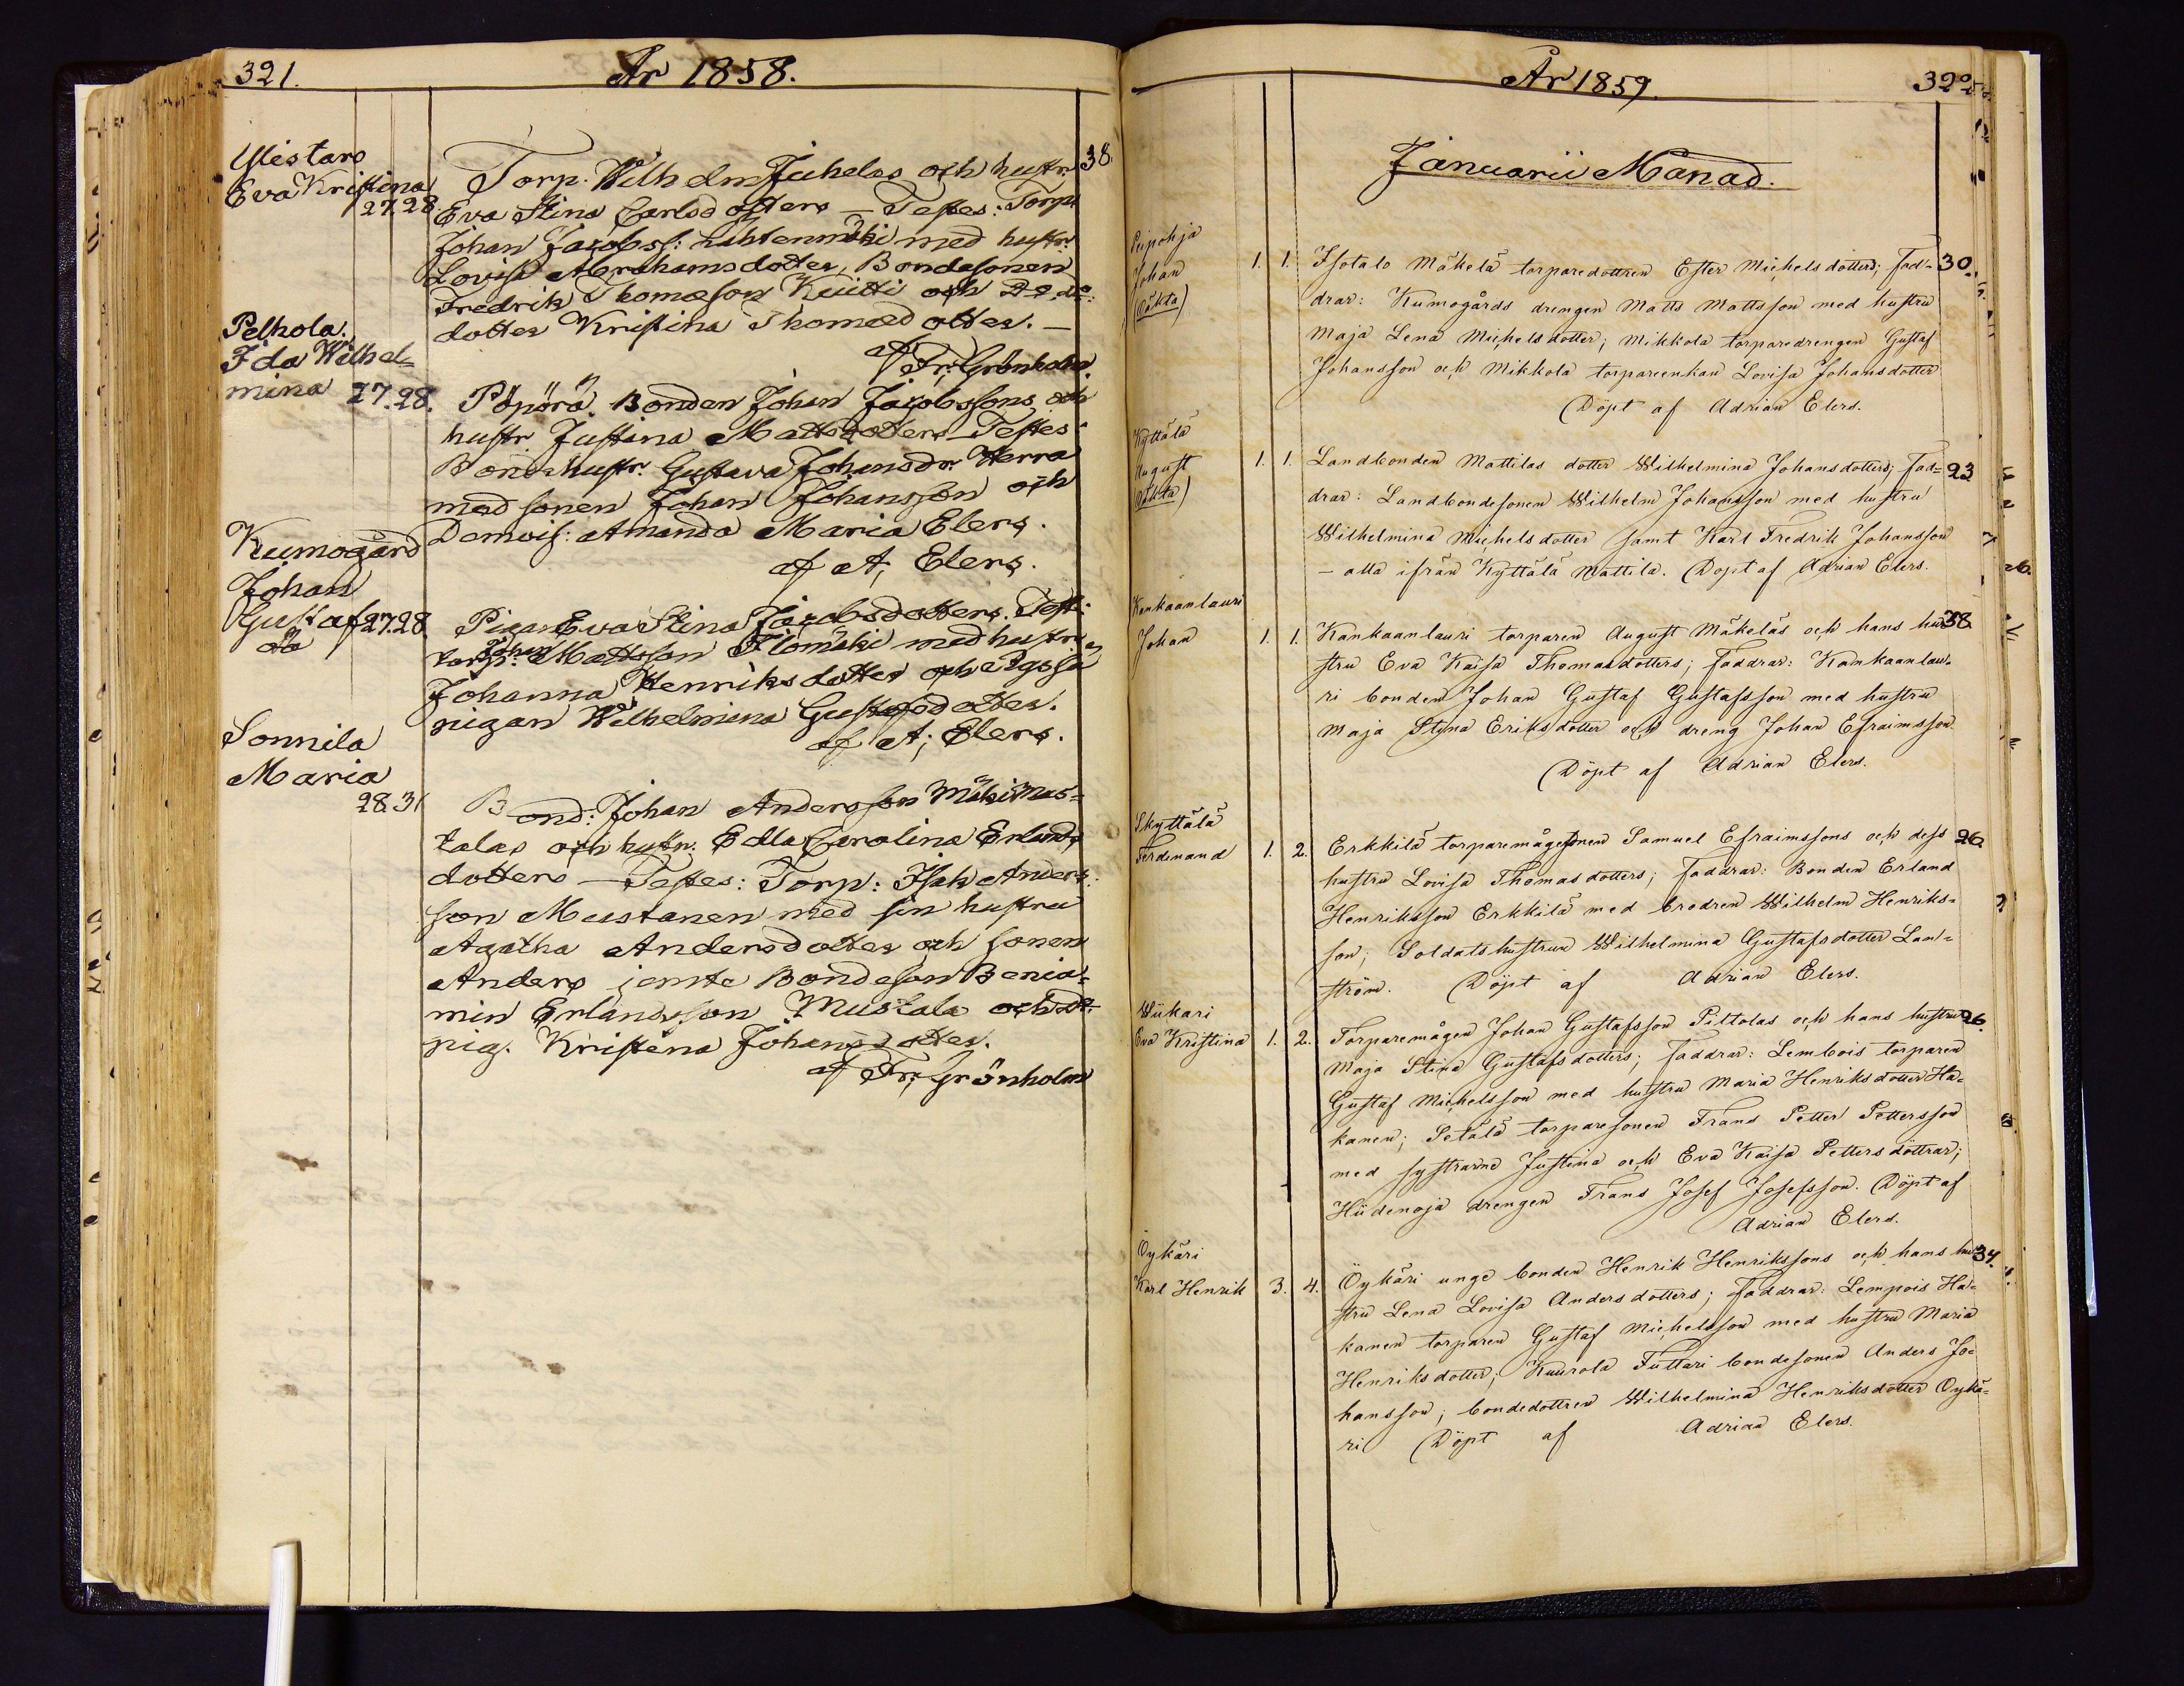 321.
År 1858.
Ylistaro
Eva Kristina
27. 28.
Torp. Wilhelm Juhelas och hustr. 38.
Eva Stina Carlsdotters — Testes: Torp.
Johan Jacobss: Lähtenmäki med hustr.
Lovisa Abrahamsdotter, Bondesonen
Fredrik Thomasson Kuitti och
dotter Kristina Thomasdotter. —
af Fr. Grönholm.
Pelhola.
Ida Wilhel=
mina 27. 28.
Pöpörä. Bonden Johan Jacobssons och
hustr. Justina Mattsdotters — Testes:
Bondehustr. Gustava Johansdr. Herra
med sonen Johan Johansson och
Demois: Amanda Maria Elers.
af A; Elers.
Kumogård
Johan
Gustaf 27. 28.
oä
Pigan Eva Stina Jacobsdotters. Test:
torp: Johan Mattsson Ilomäki med hustru
Johanna Henriksdotter och
pigan Wilhelmina Gustafsdotter.
af A; Elers.
Sonnila
Maria
28. 31
Bond: Johan Andersson Mäki Mus=
talas och hustr. Edla Carolina Erlands
dotters — Testes: Torp: Isak Anders=
son Mustanen med sin hustru
Agatha Andersdotter och sonen
Anders jemte Bondeson Benia=
min Erlandsson Mustala och
pig. Kristina Johansdotter.
af Fr; Grönholm
År 1859.
322
Januarii Månad.
Peipohja
Johan
(Oäkta)
1. 1.
Isotalo Mäkelä torparedottren Ester Michelsdotters; fad= 30.
drar: Kumogårds drengen Matts Mattsson med hustru
Maja Lena Michelsdotter; Mikkola torparedrengen Gustaf
Johansson och Mikkola torpareenkan Lovisa Johansdotter
Döpt af Adrian Elers.
Kyttälä
August
(Oäkta)
1. 1.
Landbonden Mattilas dotter Wilhelmina Johansdotters; fad= 23
drar: Landbondesonen Wilhelm Johansson med hustru
Wilhelmina Michelsdotter samt Karl Fredrik Johansson
— alla ifrån Kyttälä Mattila. Döpt af Adrian Elers.
Kankaanlauri
Johan
1. 1.
Kankaanlauri torparen August Mäkeläs och hans hu= 38
stru Eva Kaisa Thomasdotters; faddrar: Kankaanlau=
ri bonden Johan Gustaf Gustafsson med hustru
Maja Stina Eriksdotter och dreng Johan Efraimsson.
Döpt af Adrian Elers.
Skyttälä
Ferdinand
1. 2.
Erkkilä torparemågsonen Samuel Efraimssons och dess 26.
hustru Lovisa Thomasdotters; faddrar: Bonden Erland
Henriksson Erkkilä med brodren Wilhelm Henriks=
son; Soldatshustrun Wilhelmina Gustafsdotter Lan=
ström. Döpt af Adrian Elers.
Wiikari
Eva Kristina
1. 2.
Torparemågen Johan Gustafsson Piltolas och hans hustru 26.
Maja Stina Gustafsdotters; faddrar: Lembois torparen
Gustaf Michelsson med hustru Maria Henriksdotter Ha=
kanen; Setälä torparesonen Frans Petter Pettersson
med systrarne Justina och Eva Kaisa Pettersdöttrar;
Hiidenoja drengen Frans Josef Josefsson. Döpt af
Adrian Elers.
Öykäri
Karl Henrik
3. 4.
Öykäri unge bonden Henrik Henrikssons och hans hu= 34.
stru Lena Lovisa Andersdotters; faddrar: Lempois Ha=
kanen torparen Gustaf Michelsson med hustru Maria
Henriksdotter; Kuurola Tuttari bondesonen Anders Jo=
hansson; bondedottren Wilhelmina Henriksdotter Öykä=
ri Döpt af Adrian Elers.